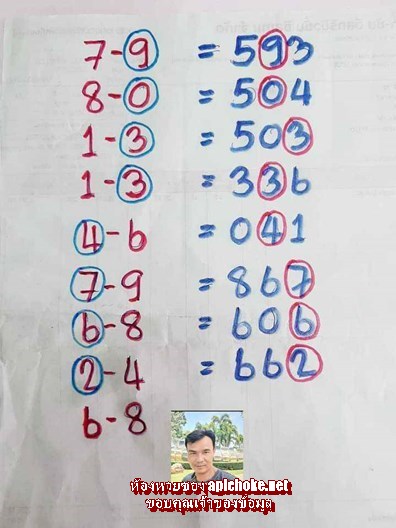 7-9 = 593
8-0 = 504
1-3 = 503
1-3 = 336
4-6 = 041
7-9 = 867
6-8 = 606
2-4 = 662
6-8
ห้องหวยของapichoke.net
ขอบคุณเจ้าของข้อมูล